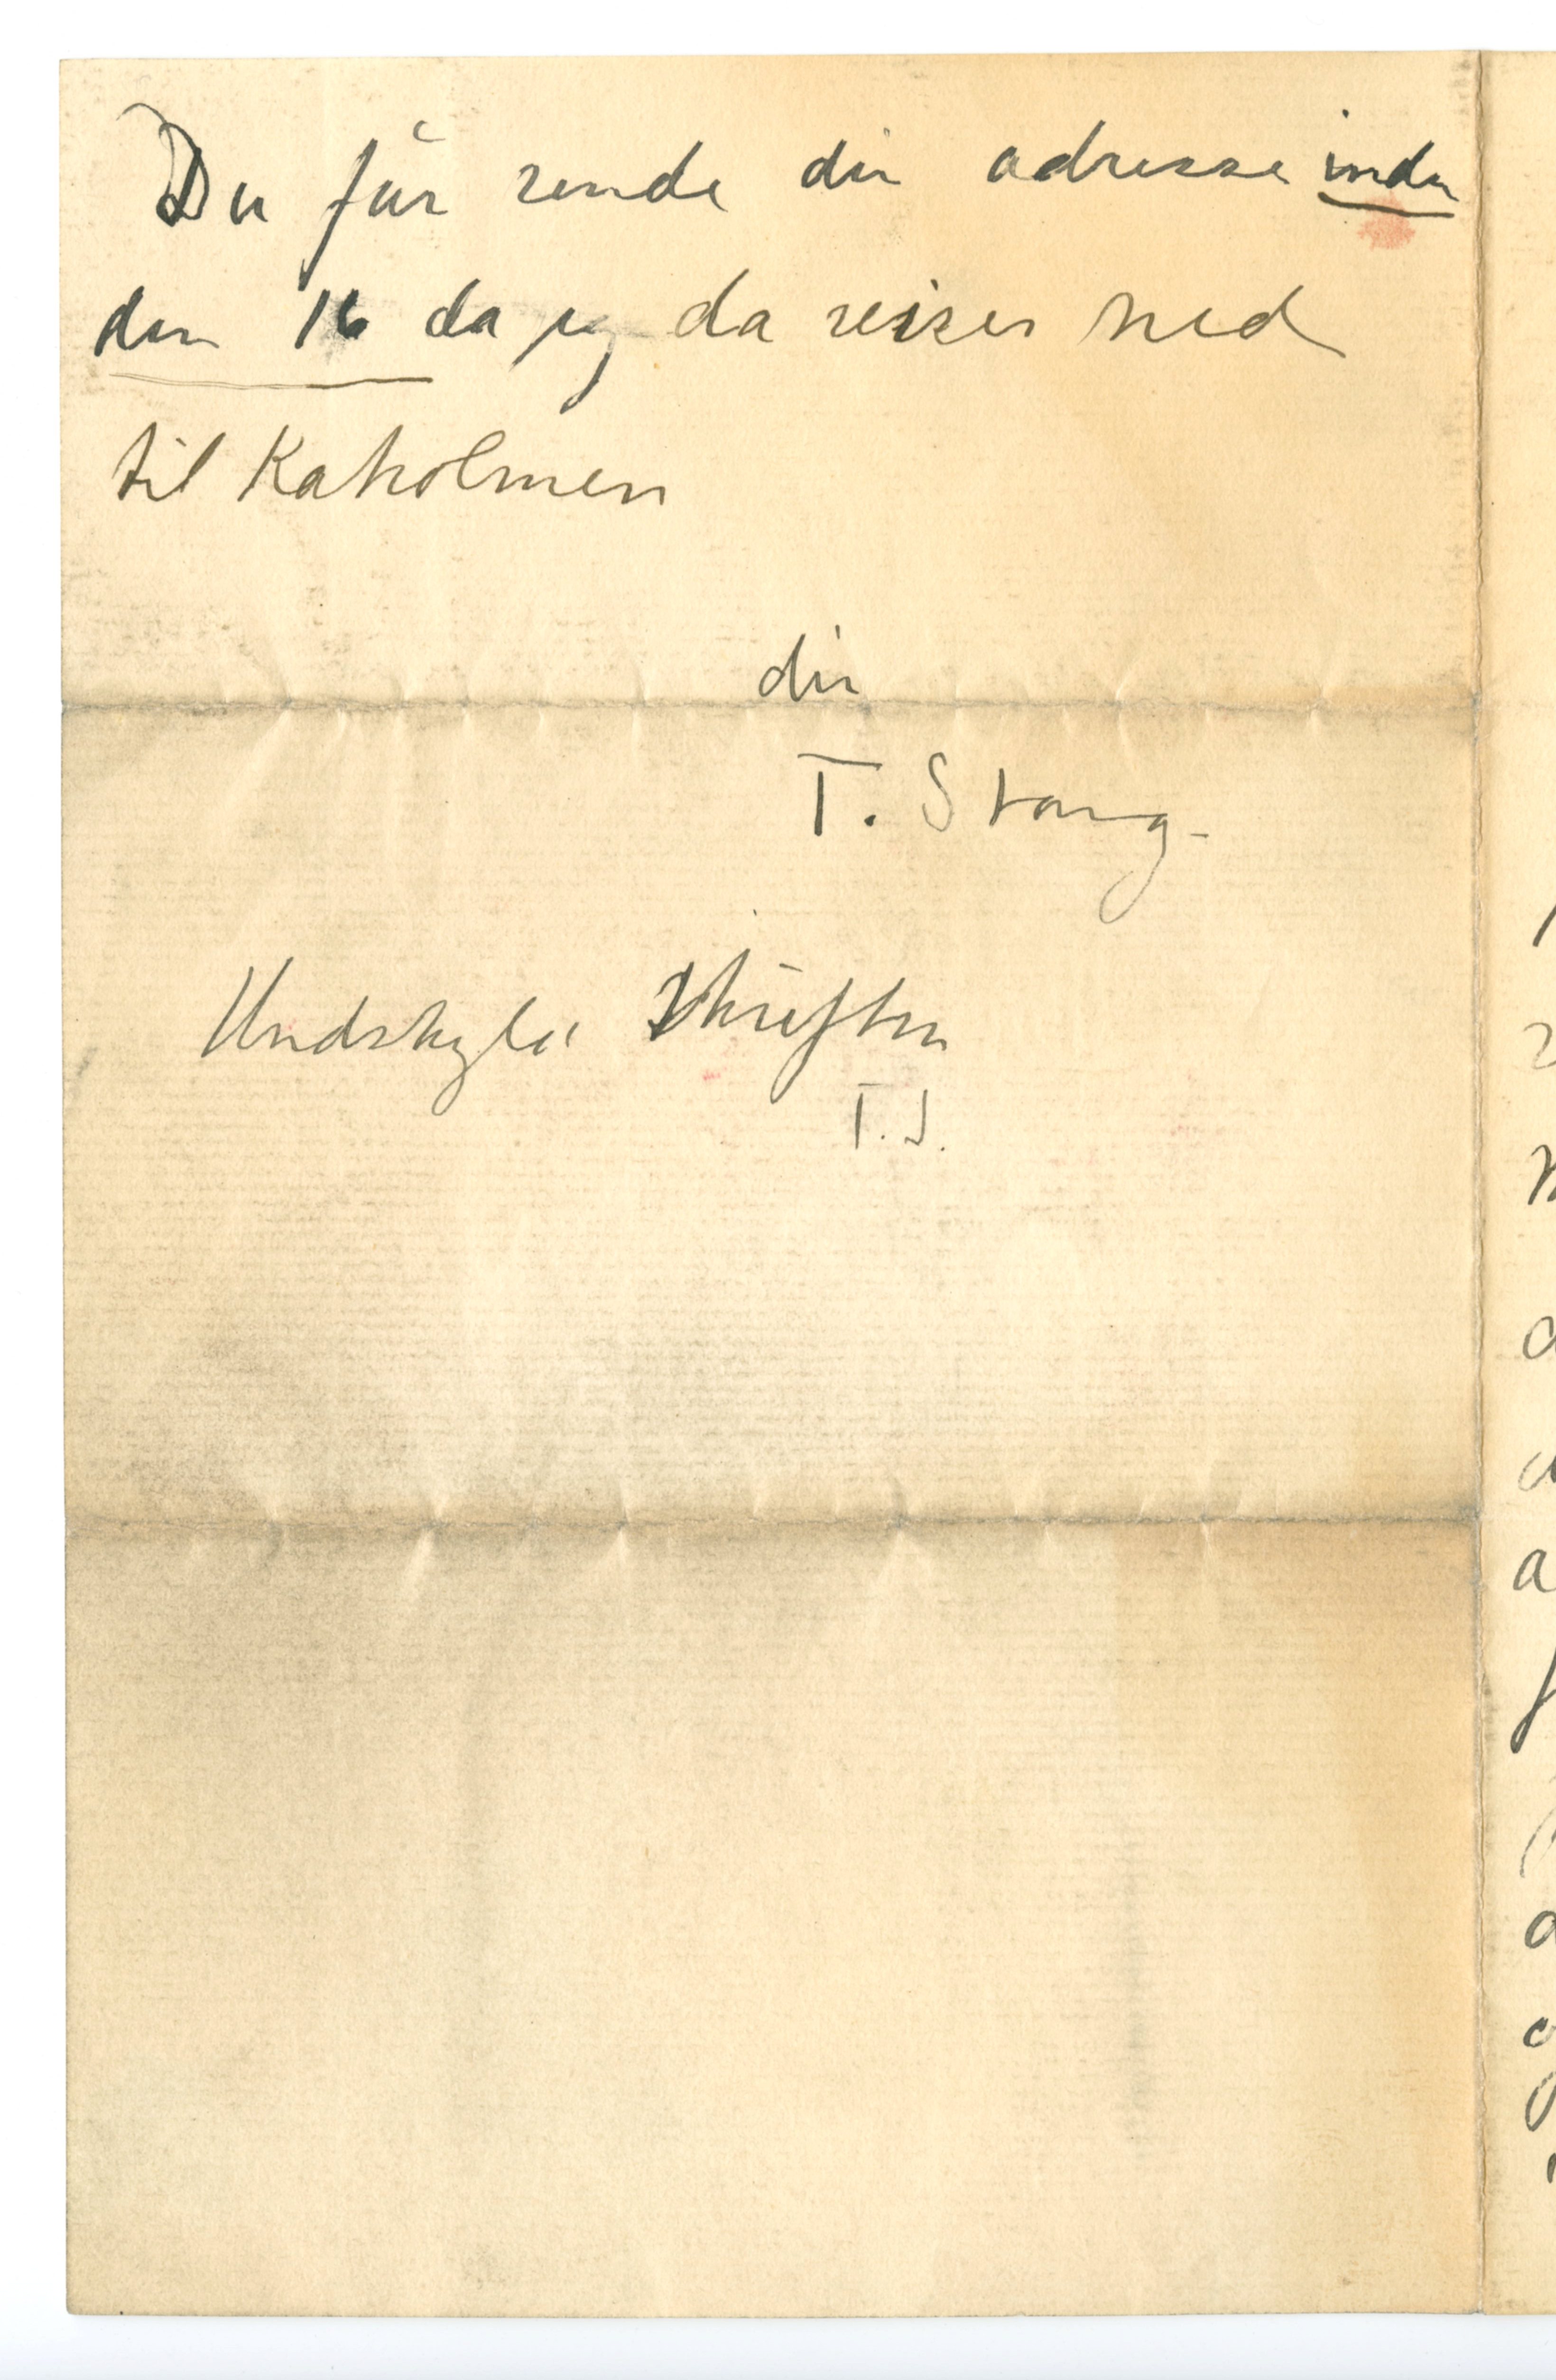 Du får sende din adresse inden
den 16 da jeg da reiser ned
til Kaholmen
din
T. Stang.
Undskyld skriften
T. S.